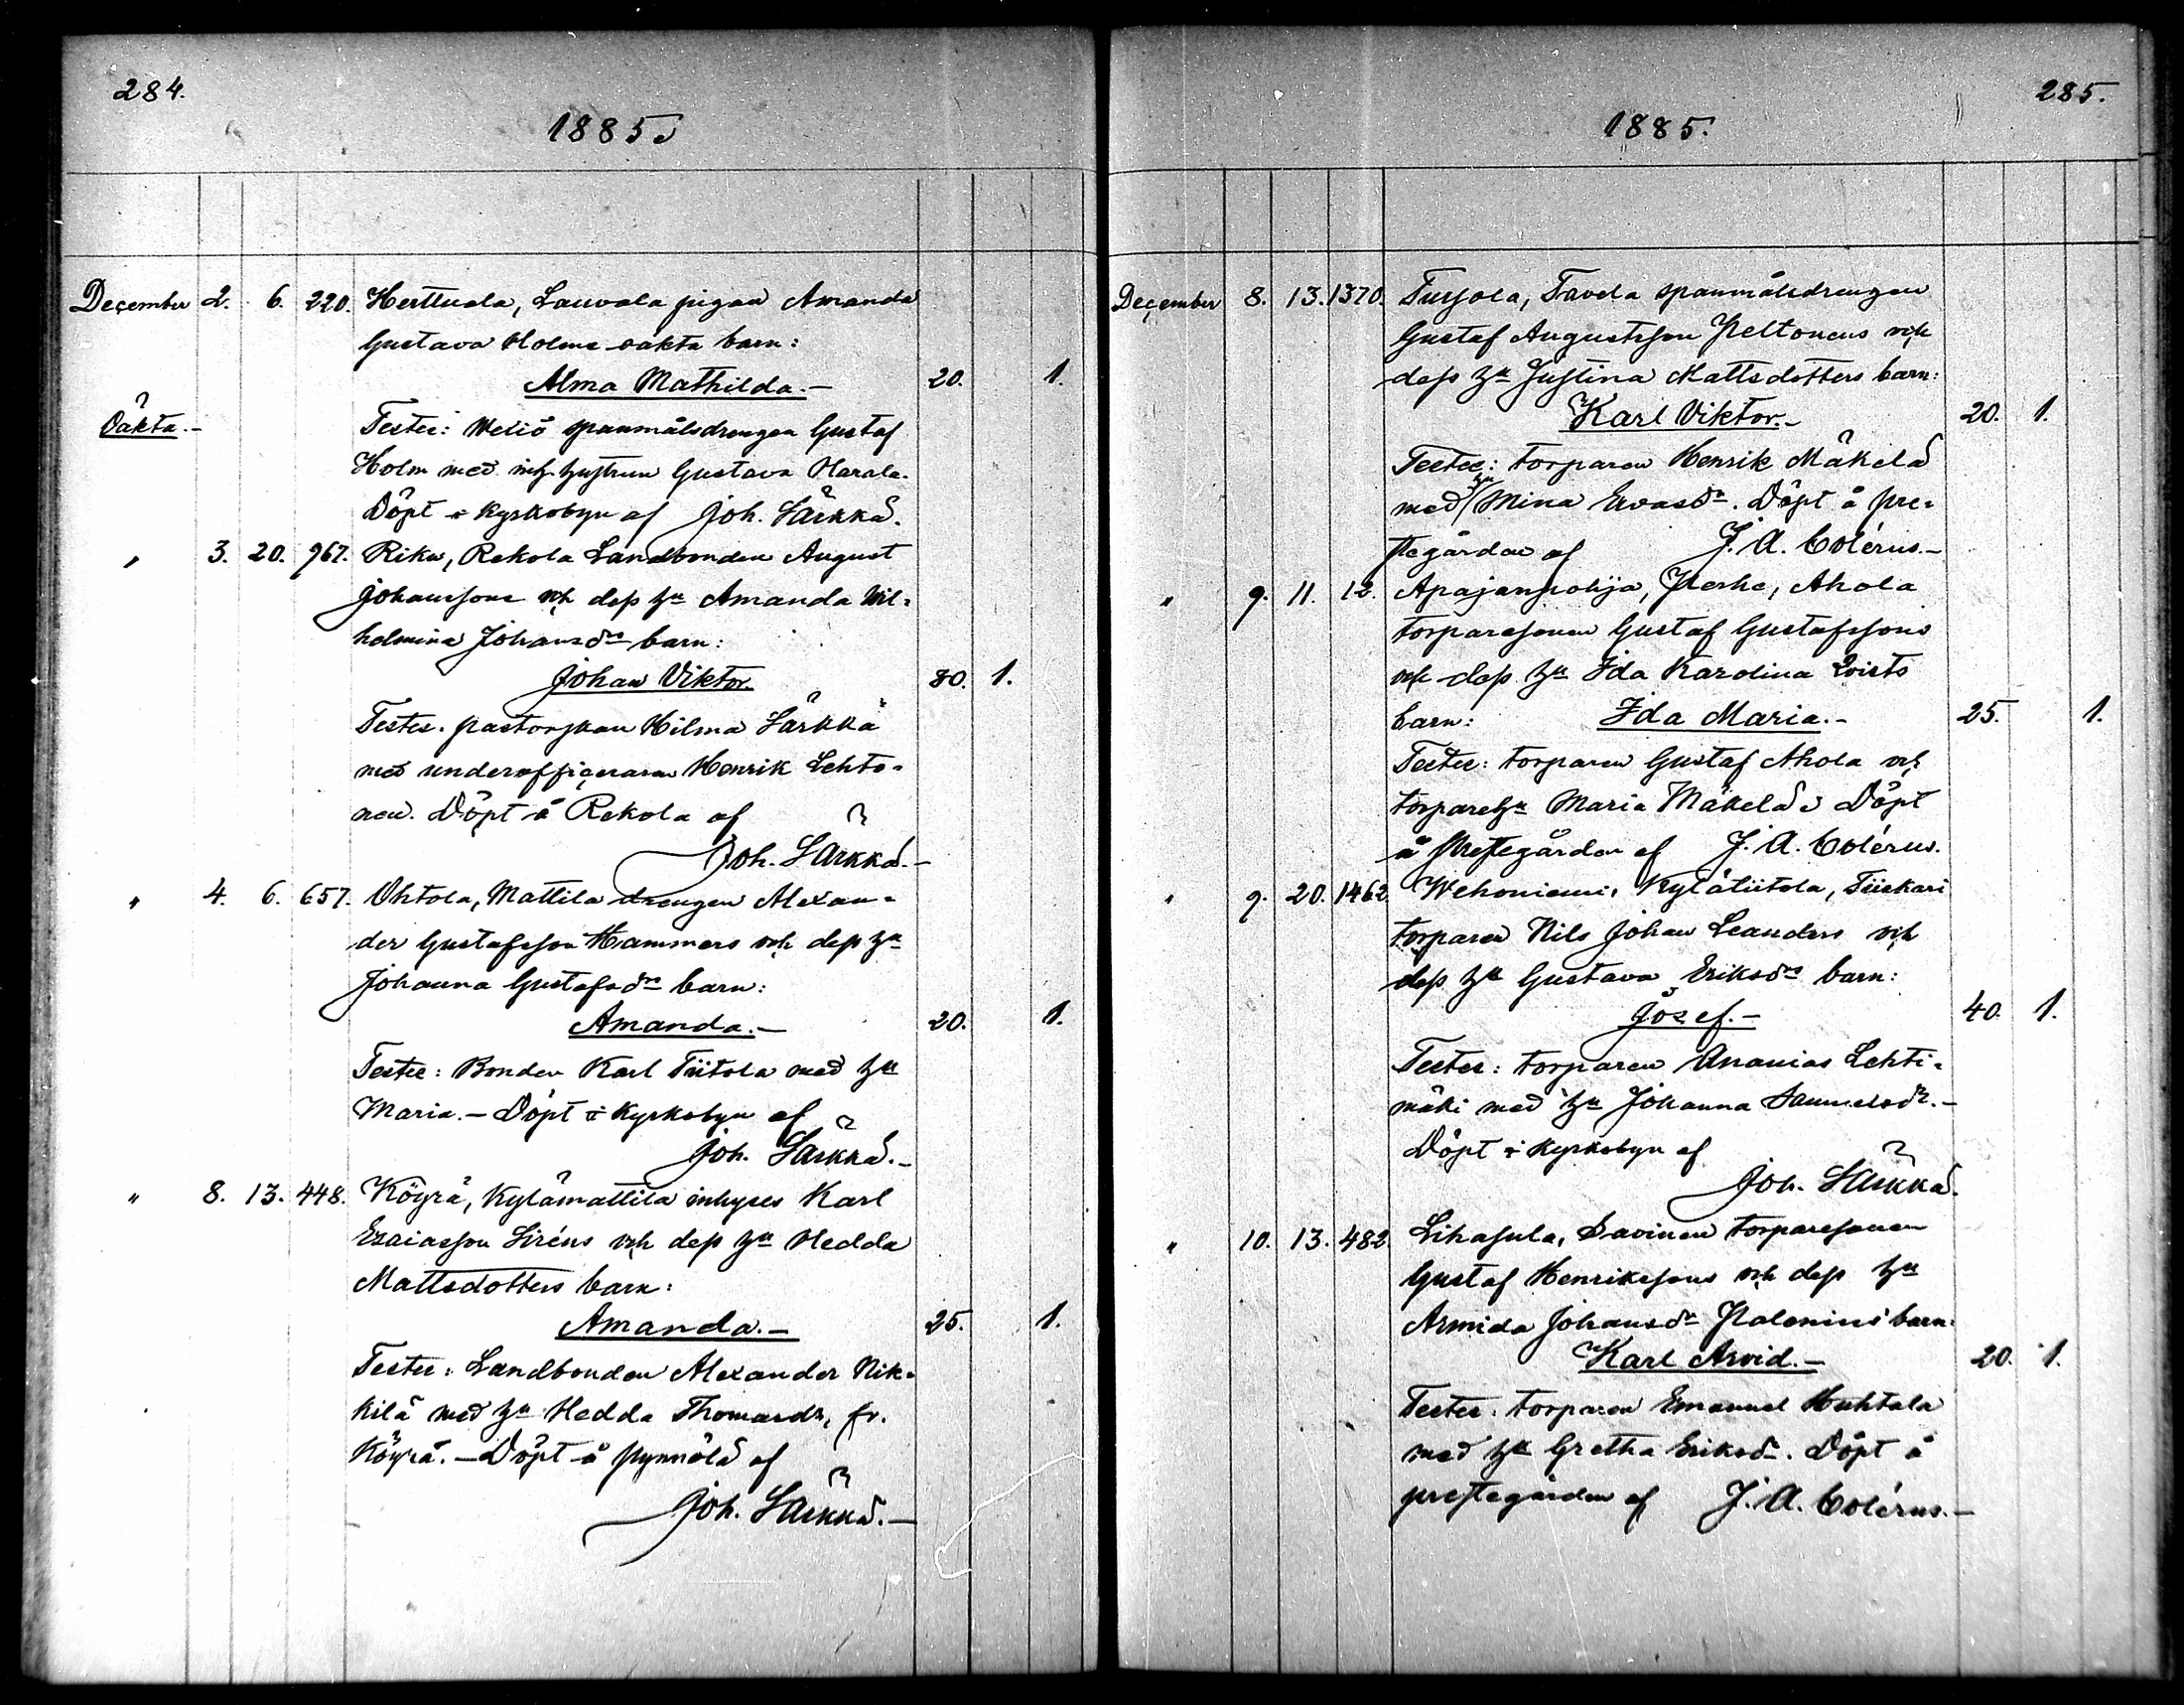 284.
1885.
December 2. 6. 220. Herttuala, Lauvola pigan Amanda
Gustava Holms oäkta barn:
Alma Mathilda.- 20. 1.
Oäkta.-
Testes: spanmålsdrengen Gustaf
Holm med inh. hustrun Gustava Harala.
Döpt i Kyrkobyn af Joh. Särkkä.
" 3. 20. 967. Riku, Rekola Landbonden August
Johanssons och dess hu Amanda Wil-
helmina Johansdrs barn:
Johan Viktor. 30. 1.
Testes. pastorskan Hilma Särkkä
med underofficeraren Henrik Lehto-
nen. Döpt å Rekola af
Joh. Särkkä.-
" 4. 6. 657. Ohtola, Mattila drengen Alexan-
der Gustafsson Hammars och dess hu
Johanna Gustafsdrs barn:
Amanda.- 20. 1.
Testes: Bonden Karl Tiitola med hu
Maria.- Döpt i Kyrkobyn af
Joh. Särkkä.-
" 8. 13. 448. Köyrä, Kylämattila inhyses Karl
Esaiasson Siréns och dess hu Hedda
Mattsdotters barn:
Amanda.- 25. 1.
Testes: Landbonden Alexander Nik-
kilä med hu Hedda Thomasdr, fr.
Köyrä.- Döpt å Pynnölä af
Joh. Särkkä.-
285.
1885.
December 8. 13. 1370. Tursola, Tavela spanmålsdrengen
Gustaf Augustsson Peltonens och
dess hu Justina Mattsdotters barn:
Karl Viktor.- 20. 1.
Testes: torparen Henrik Mäkelä
med hu Mina Evasdr. Döpt å pre-
stegården af J. A. Colérus.-
" 9. 11. 12. Apajanpohja, Perhe, Ahola
torparesonen Gustaf Gustafssons
och dess hu Ida Karolina Qvists
barn: Ida Maria.- 25. 1.
Testes: torparen Gustaf Ahola och
torparehu Maria Mäkelä. Döpt
å Prestegården af J. A. Colérus.
" 9. 20. 1462. Wehoniemi, Kylätiitola, Tiiskari
torparen Nils Johan Leanders och
dess hu Gustava Eriksdrs barn:
Josef.- 40. 1.
Testes: torparen Ananias Lehti-
mäki med hu Johanna Samuelsdr.-
Döpt i Kyrkobyn af
Joh. Särkkä.
" 10. 13. 482. Lihasula, Savinen torparesonen
Gustaf Henrikssons och dess hu
Armida Johansdr Palenius' barn:
Karl Arvid.- 20. 1.
Testes: torparen Emanuel Huhtala
med hu Gretha Eriksdr. Döpt å
prestegården af J. A. Colérus.-